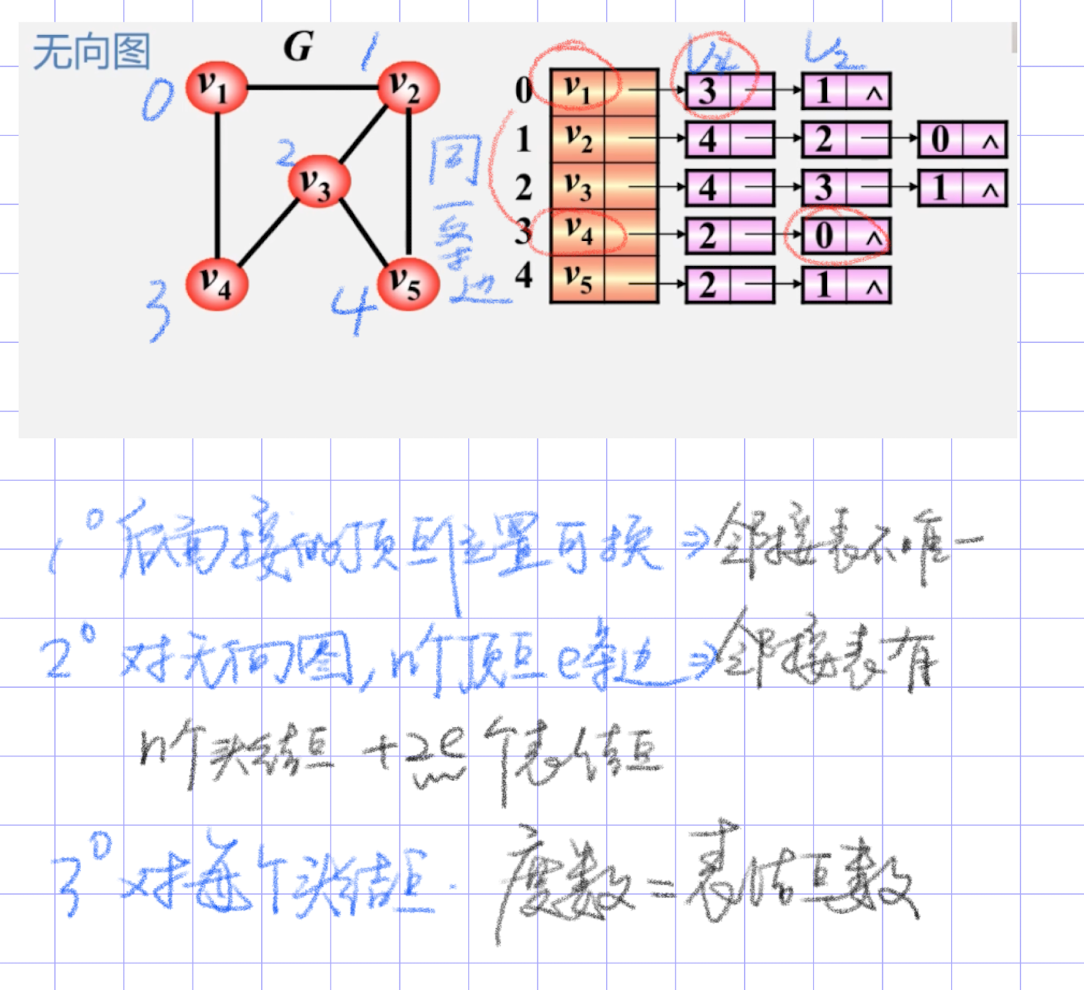 无向图 G
0 v1 1 v2
2 v3
3 v4 4 v5
同一条边
v4 v2
0 v1 3 1 ^
1 v2 4 2 0 ^
2 v3 4 3 1 ^
3 v4 2 0 ^
4 v5 2 1 ^
1° 后面接的顶点位置可换 ⇒ 邻接表不唯一
2° 对无向图, n个顶点 e条边 ⇒ 邻接表有
n个头结点 + 2e 个表结点
3° 对每个头结点. 度数 = 表结点数